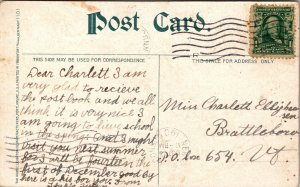 Post Card.
THIS SIDE MAY BE USED FOR CORRESPONDENCE
THIS SPACE FOR ADDRESS ONLY
Dear Charlett I am
very glad to recieve
the post book and we all
think it is very nice I
am going to have school
in the and I might
visit you next summer
I will be fourtain the
first of December good by
here is a kiss for you from
Miss Charlett
Brattleboro
P.O. box 654. Vt